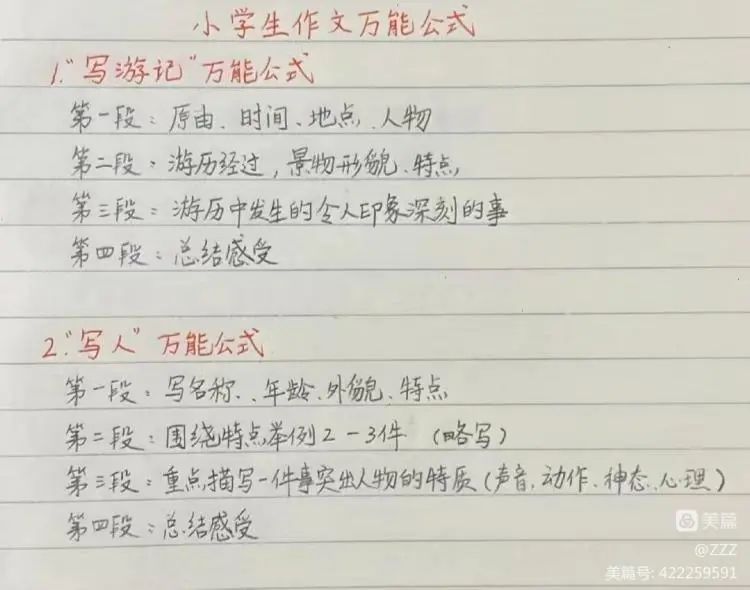 小学生作文万能公式
1.“写游记”万能公式
第一段：原由、时间、地点、人物
第二段：游历经过，景物形貌、特点，
第三段：游历中发生的令人印象深刻的事
第四段：总结感受
2.“写人”万能公式
第一段：写名称、年龄、外貌、特点
第二段：围绕特点举例2-3件（略写）
第三段：重点描写一件事突出人物的特质（声音、动作、神态、心理）
第四段：总结感受
美篇
@ZZZ
美篇号: 422259591